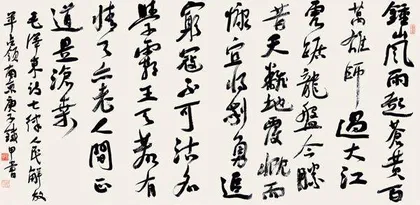 鍾山風雨起蒼黄百
萬雄師過大江
虎踞龍盤今勝
昔天翻地覆慨而
慷宜將剩勇追
窮寇不可沽名
學霸王天若有
情天亦老人間正
道是滄桑
毛澤東詩七律人民解放
軍占領南京庚子甲書